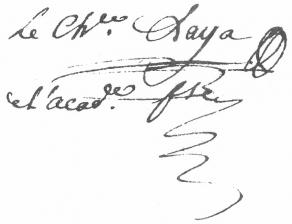 Le Ch.er Laya
de l'acad.ie fse